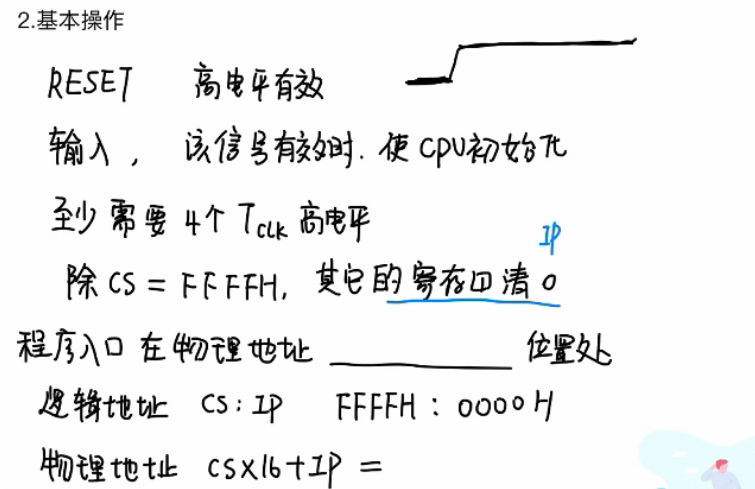 2.基本操作
RESET 高电平有效
输入， 该信号有效时. 使CPU初始化
至少需要4个TCLK高电平
IP
除CS = FFFFH, 其它的寄存口清0
程序入口在物理地址 ________ 位置处
逻辑地址 CS:IP FFFFH:0000H
物理地址 CS×16+IP =